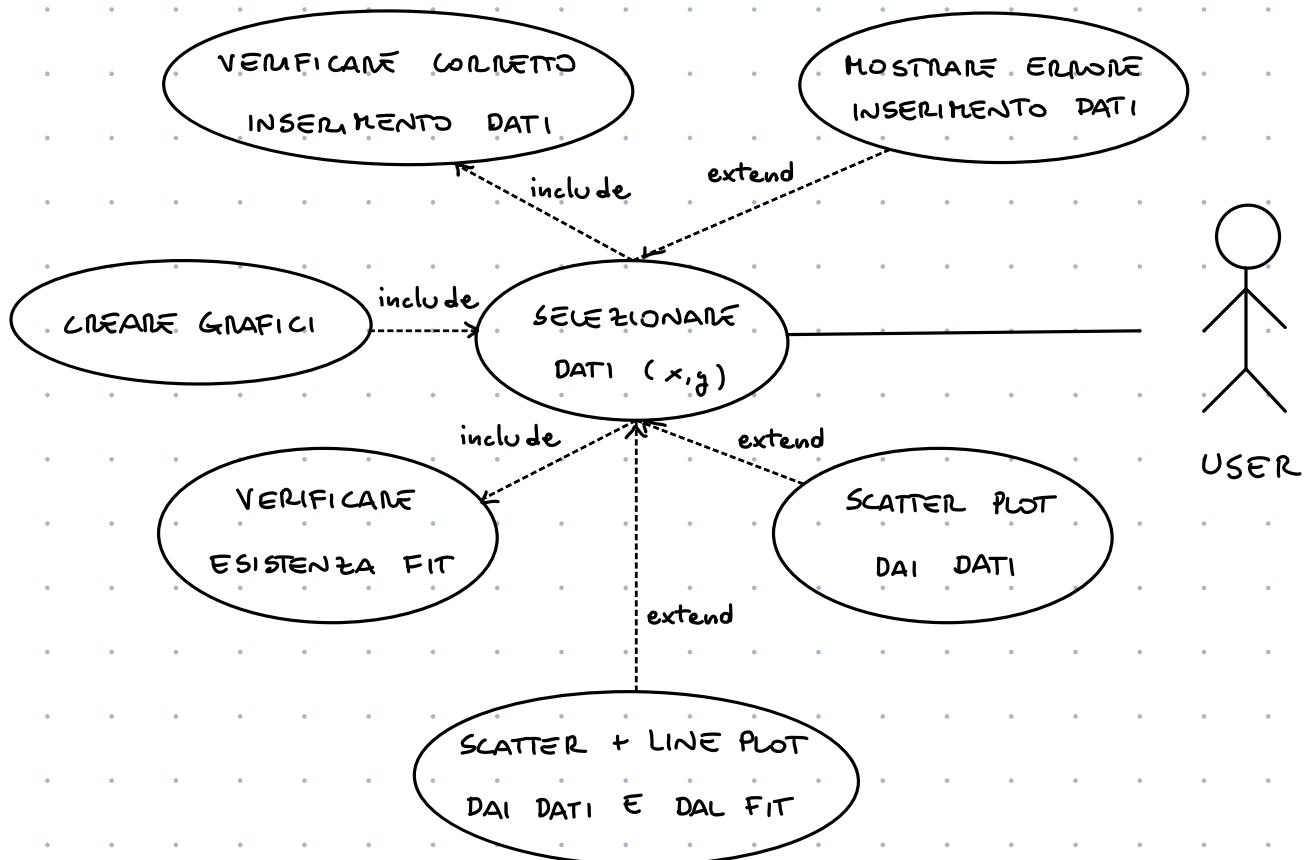 VERIFICARE CORRETTO
INSERIMENTO DATI
MOSTRARE ERRORE
INSERIMENTO DATI
include
extend
CREARE GRAFICI
include
SELEZIONARE
DATI (x,y)
USER
include
extend
VERIFICARE
ESISTENZA FIT
SCATTER PLOT
DAI DATI
extend
SCATTER + LINE PLOT
DAI DATI E DAL FIT